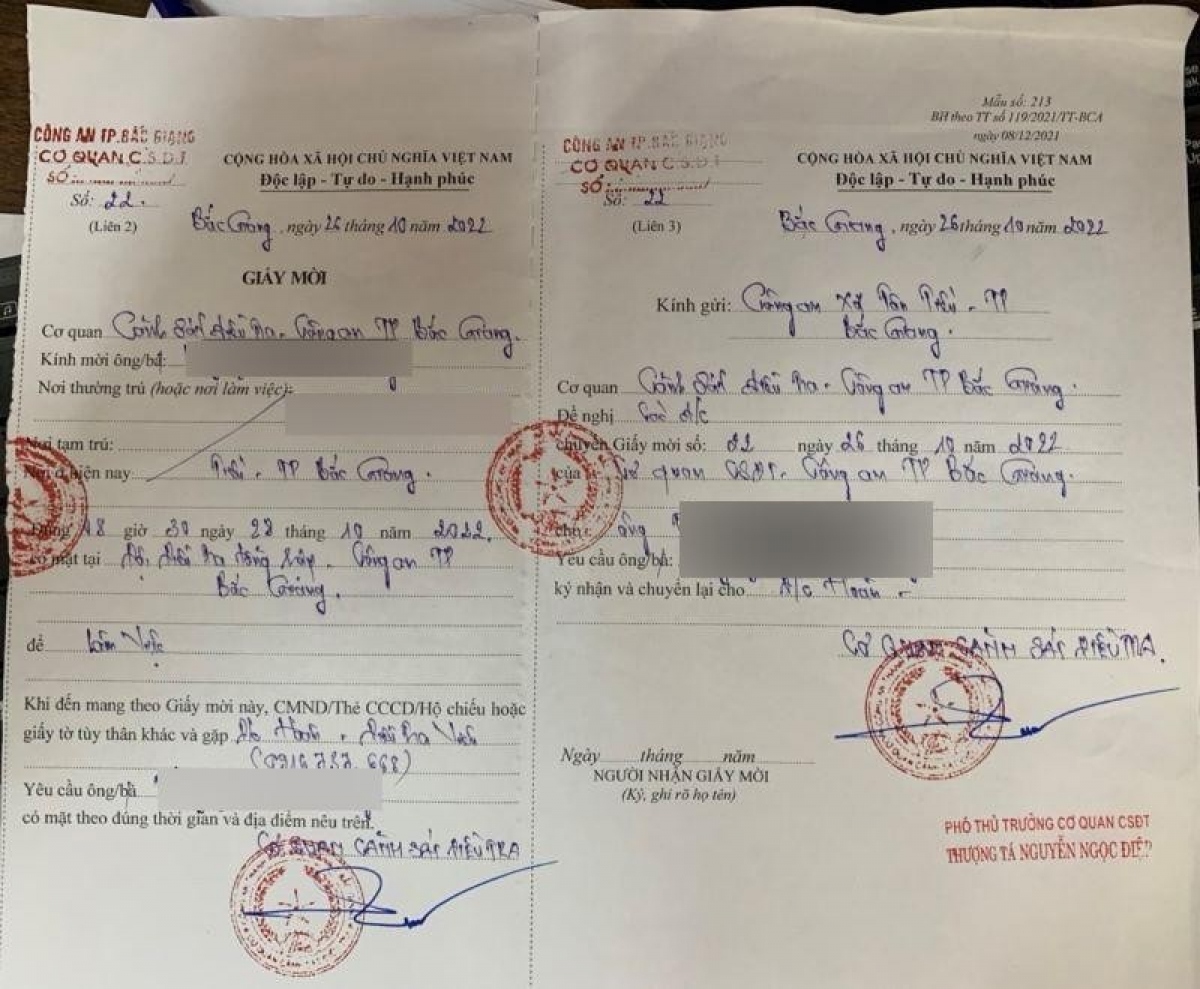 CÔNG AN TP.BẮC GIANG
CƠ QUAN C.S.D.T
SỐ
Số: 22.
(Liên 2)
CỘNG HÒA XÃ HỘI CHỦ NGHĨA VIỆT NAM
Độc lập - Tự do - Hạnh phúc
Bắc Giang, ngày 26 tháng 10 năm 2022
GIẤY MỜI
Cơ quan Cảnh sát điều tra - Công an TP Bắc Giang.
Kính mời ông/bà:
Nơi thường trú (hoặc nơi làm việc):
Nơi tạm trú:
Nơi ở hiện nay TP Bắc Giang.
Đúng 18 giờ 30 ngày 28 tháng 10 năm 2022.
có mặt tại Công an TP
Bắc Giang.
để Làm việc
Khi đến mang theo Giấy mời này, CMND/Thẻ CCCD/Hộ chiếu hoặc
giấy tờ tùy thân khác và gặp Điều tra viên
Yêu cầu ông/bà
có mặt theo đúng thời gian và địa điểm nêu trên.
CƠ QUAN CẢNH SÁT ĐIỀU TRA
Mẫu số: 213
BH theo TT số 119/2021/TT-BCA
ngày 08/12/2021
CÔNG AN TP.BẮC GIANG
CƠ QUAN C.S.D.T
SỐ
Số: 22
(Liên 3)
CỘNG HÒA XÃ HỘI CHỦ NGHĨA VIỆT NAM
Độc lập - Tự do - Hạnh phúc
Bắc Giang, ngày 26 tháng 10 năm 2022
Kính gửi: Công an xã Tân Tiến - TP
Bắc Giang.
Cơ quan Cảnh sát điều tra - Công an TP Bắc Giang.
Đề nghị các đ/c
chuyển Giấy mời số: 22 ngày 26 tháng 10 năm 2022
của Cơ quan CSĐT - Công an TP Bắc Giang.
cho ông
Yêu cầu ông/bà:
ký nhận và chuyển lại cho đ/c Hoàn -
CƠ QUAN CẢNH SÁT ĐIỀU TRA.
Ngày tháng năm
NGƯỜI NHẬN GIẤY MỜI
(Ký, ghi rõ họ tên)
PHÓ THỦ TRƯỞNG CƠ QUAN CSĐT
THƯỢNG TÁ NGUYỄN NGỌC ĐIỆP